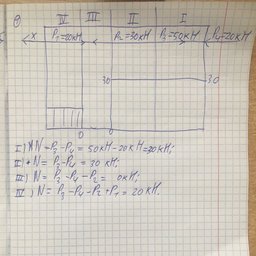 IV III II I
x P₁=20кН P₂=30кН P₃=50кН P₄=20кН
30 30
0
0
I) N=P₃-P₄ = 50кН-20кН=30кН;
II) N= P₃-P₄= 30 кН;
III) N= P₃-P₄-P₂= 0кН;
IV) N= P₃-P₄-P₂+P₁= 20кН.